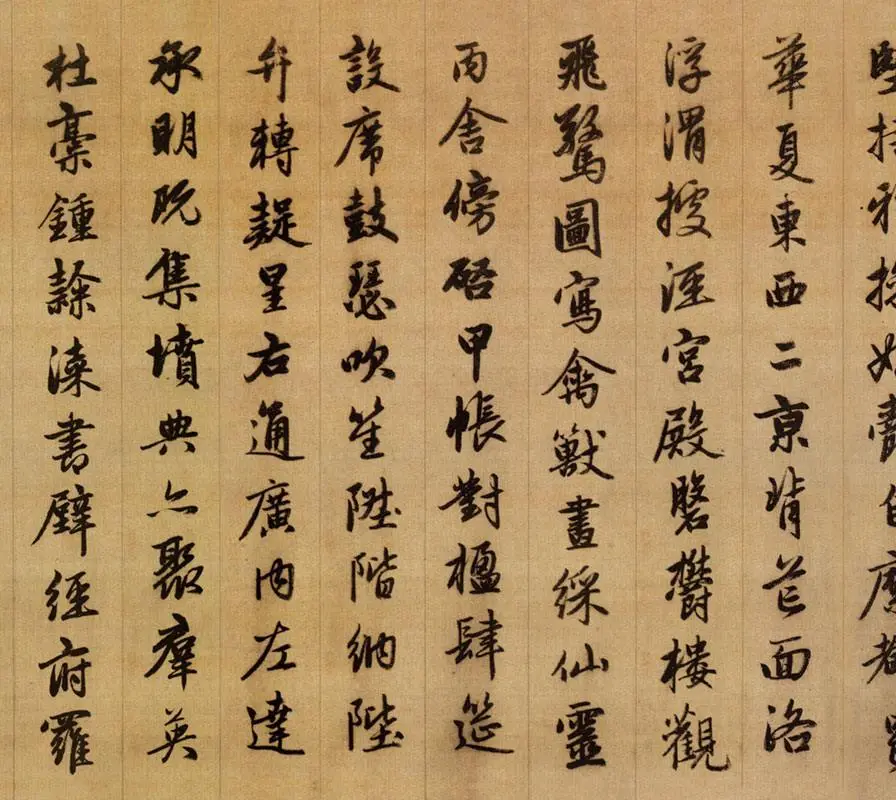 堅持雅操好爵自縻都邑
華夏東西二京背芒面洛
浮渭據涇宮殿磐鬱樓觀
飛驚圖寫禽獸畫綵仙靈
丙舍傍啓甲帳對楹肆筵
設席鼓瑟吹笙陞階納陛
弁轉疑星右通廣内左達
承明既集墳典亦聚羣英
杜稾鍾隸漆書壁經府羅